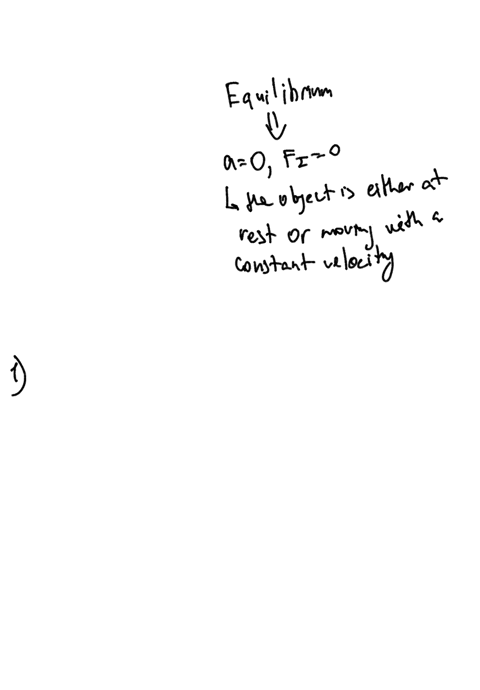 Equilibrium
⇓
a=0, F_I=0
↳ the object is either at
rest or moving with a
constant velocity
1)